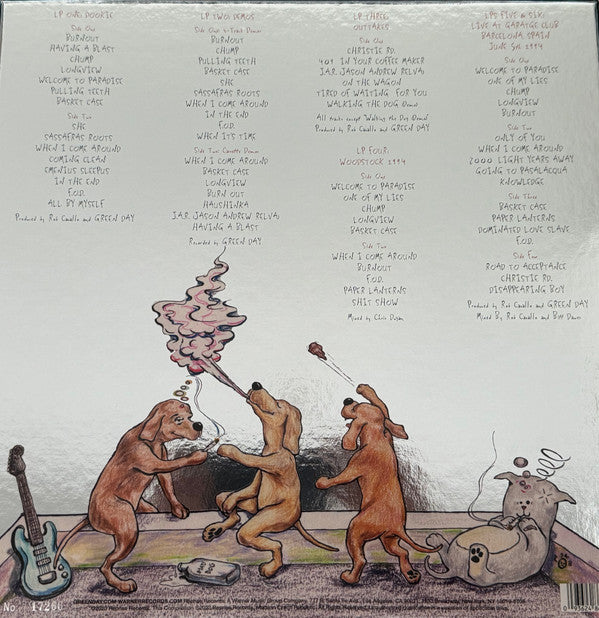 LP ONE: DOOKIE
Side One
BURNOUT
HAVING A BLAST
CHUMP
LONGVIEW
WELCOME TO PARADISE
PULLING TEETH
BASKET CASE
Side Two
SHE
SASSAFRAS ROOTS
WHEN I COME AROUND
COMING CLEAN
EMENIUS SLEEPUS
IN THE END
F.O.D.
ALL BY MYSELF
Produced by Rob Cavallo and GREEN DAY
LP TWO: DEMOS
Side One: 4-Track Demos
BURNOUT
CHUMP
PULLING TEETH
BASKET CASE
SHE
SASSAFRAS ROOTS
WHEN I COME AROUND
IN THE END
F.O.D.
WHEN IT'S TIME
Side Two: Cassette Demos
WHEN I COME AROUND
BASKET CASE
LONGVIEW
BURN OUT
HAUSHINKA
J.A.R. (JASON ANDREW RELVA)
HAVING A BLAST
Recorded by GREEN DAY
LP THREE:
OUTTAKES
Side One
CHRISTIE RD.
409 IN YOUR COFFEE MAKER
J.A.R. (JASON ANDREW RELVA)
ON THE WAGON
TIRED OF WAITING FOR YOU
WALKING THE DOG (Demo)
All tracks except Walking the Dog (Demo)
Produced by Rob Cavallo and GREEN DAY
LP FOUR:
WOODSTOCK 1994
Side One
WELCOME TO PARADISE
ONE OF MY LIES
CHUMP
LONGVIEW
BASKET CASE
Side Two
WHEN I COME AROUND
BURNOUT
F.O.D.
PAPER LANTERNS
SHIT SHOW
Mixed by Chris Dugan
LPS FIVE & SIX:
LIVE AT GARATGE CLUB
BARCELONA, SPAIN
JUNE 5th 1994
Side One
WELCOME TO PARADISE
ONE OF MY LIES
CHUMP
LONGVIEW
BURNOUT
Side Two
ONLY OF YOU
WHEN I COME AROUND
2000 LIGHT YEARS AWAY
GOING TO PASALACQUA
KNOWLEDGE
Side Three
BASKET CASE
PAPER LANTERNS
DOMINATED LOVE SLAVE
F.O.D.
Side Four
ROAD TO ACCEPTANCE
CHRISTIE RD.
DISAPPEARING BOY
Produced by Rob Cavallo and GREEN DAY
Mixed By Rob Cavallo and
No. 17260
GREENDAY.COM WARNERRECORDS.COM